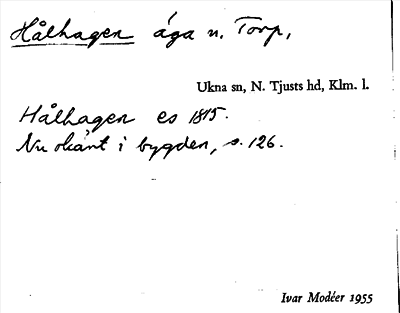 Hålhagen äga u. Torp,
Ukna sn, N. Tjusts hd, Klm. l.
Hålhagen es 1815.
Nu okänt i bygden, s. 126.
Ivar Modéer 1955